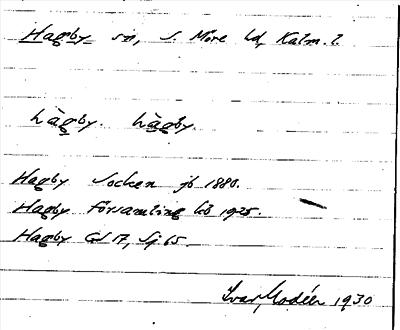 Hagby sn, S. Möre hd, Kalm. l.
hàgby. hàgby.
Hagby Socken jb 1880.
Hagby Församling kb 1925.
Hagby Gd 17, Sj 65.
Ivar Modéer 1930